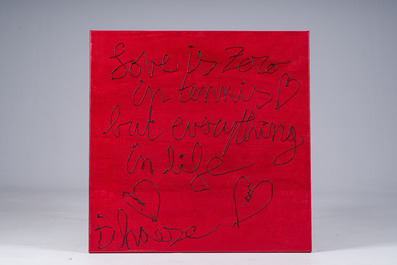 Love is zero
in tennis
but everything
in life